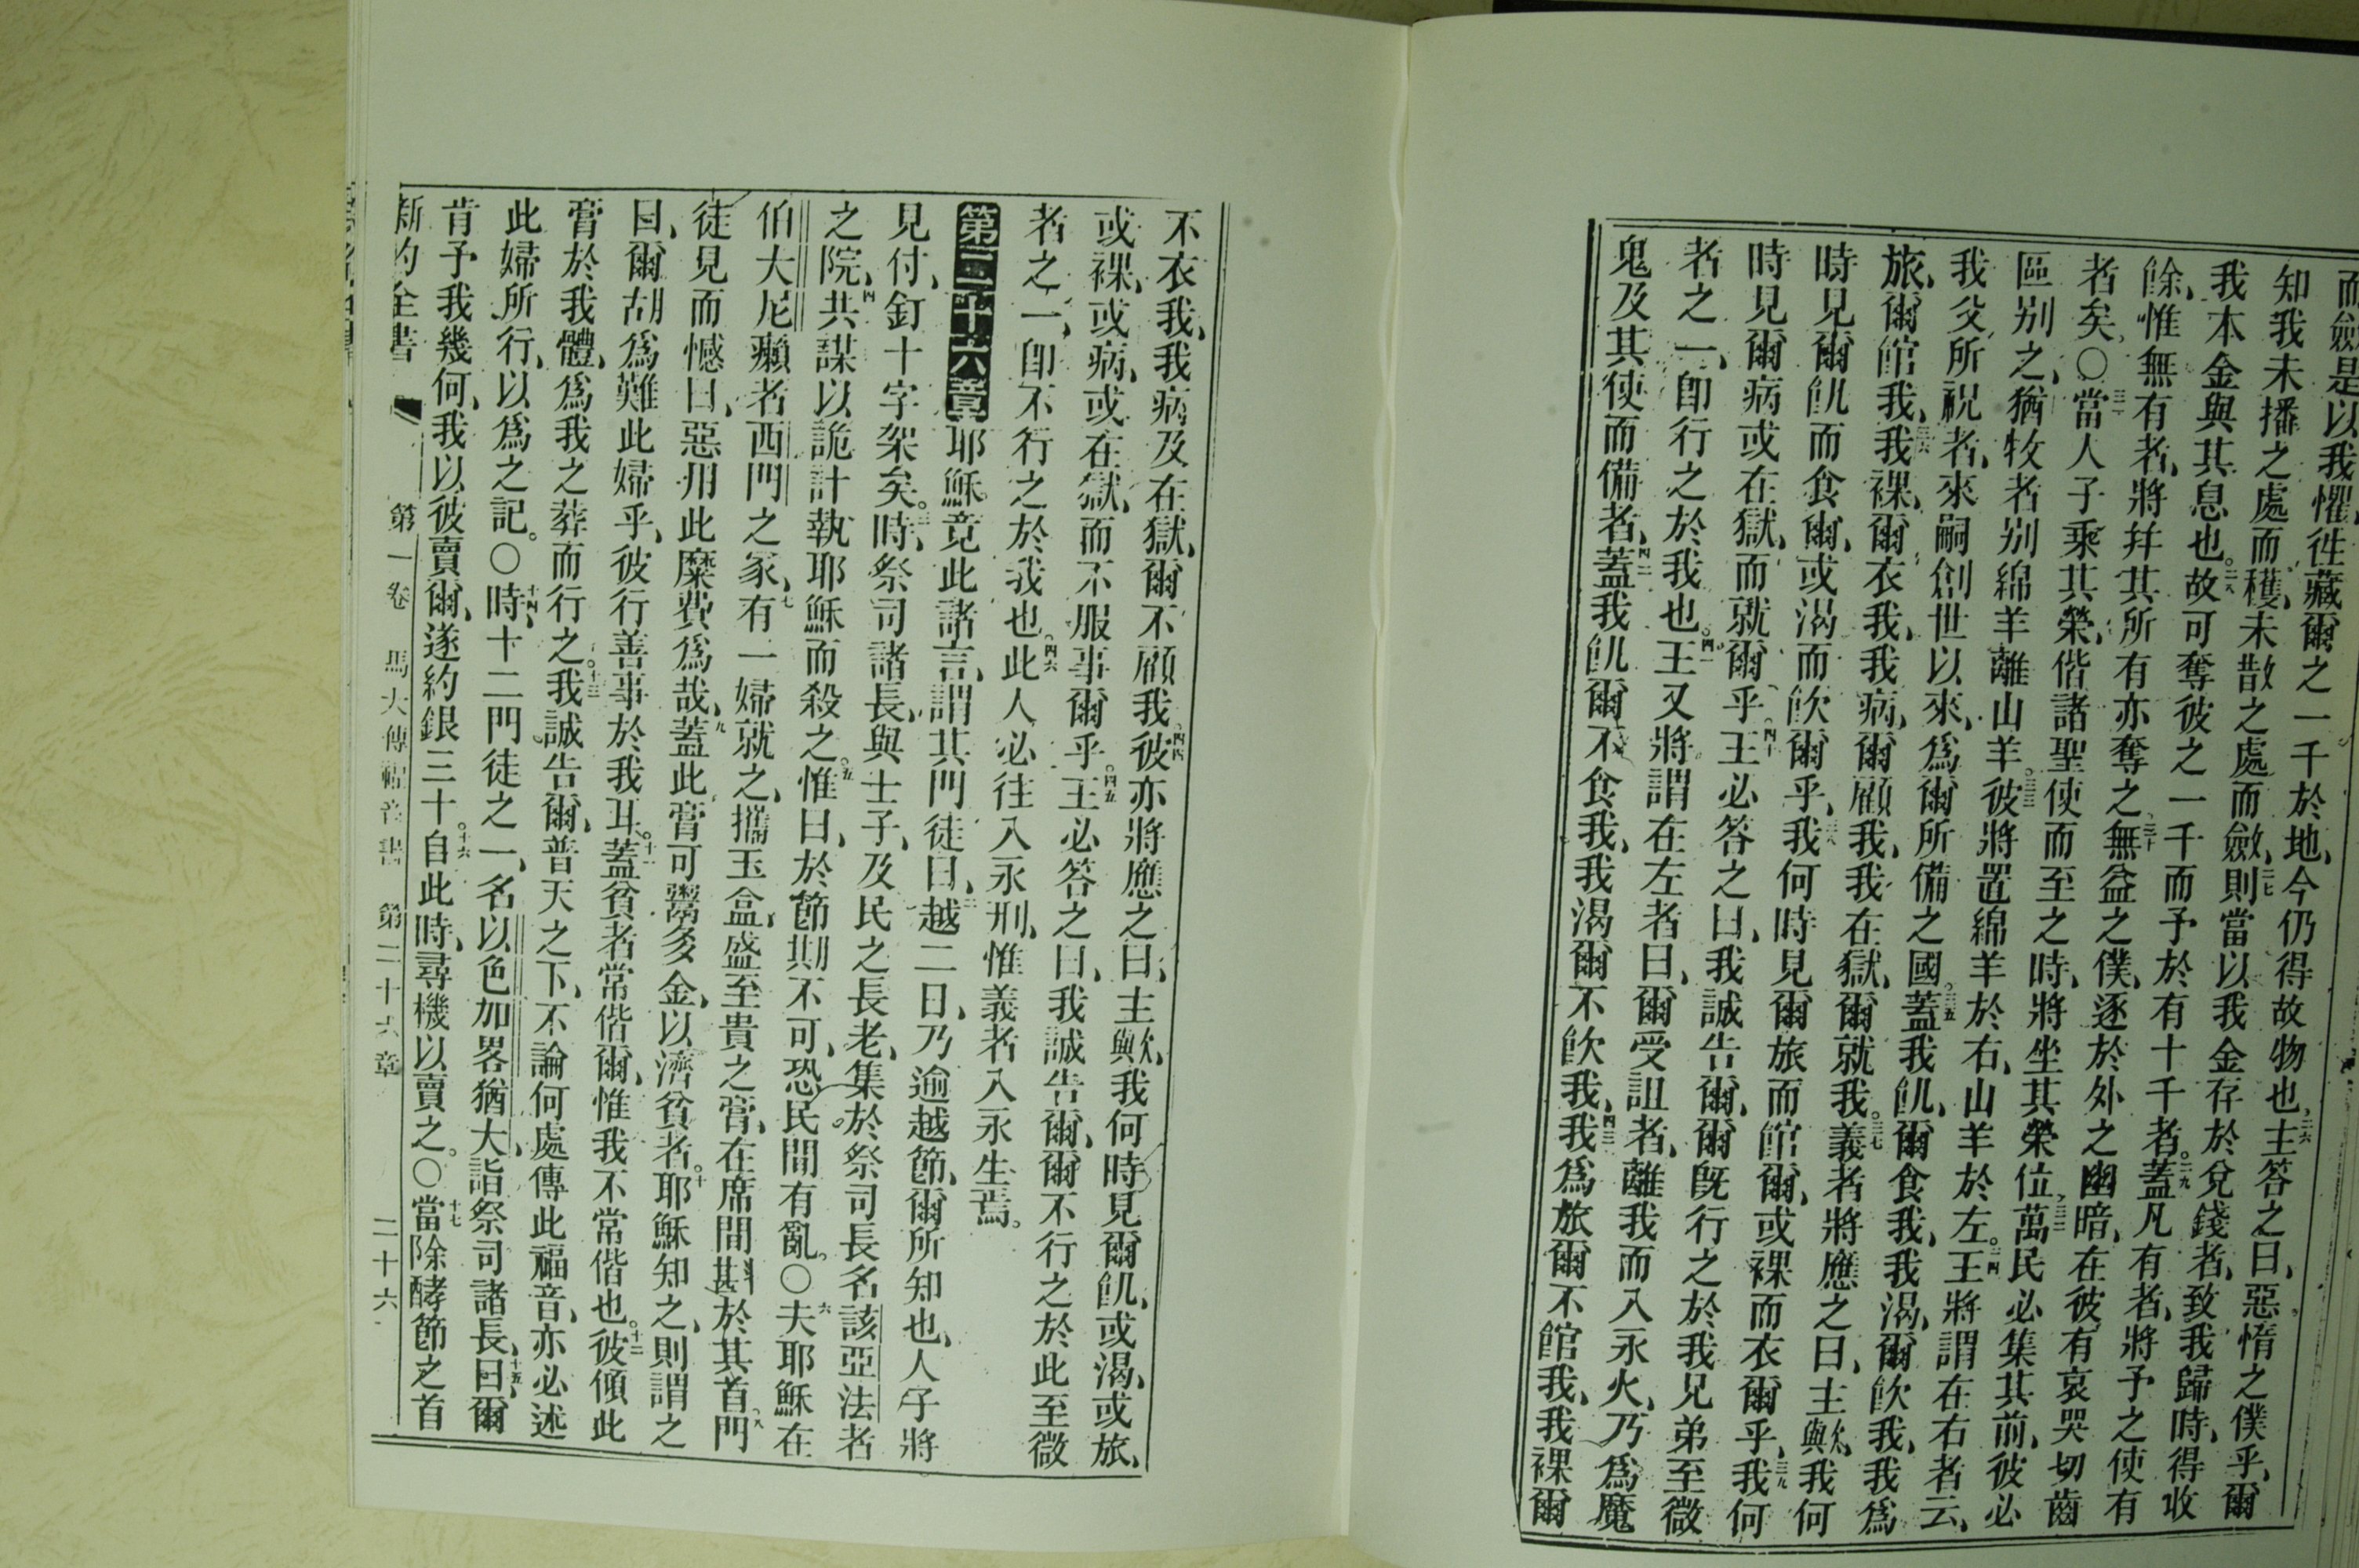 而斂是以我懼、徃藏爾之一千於地、今仍得故物也、二六主答之曰、惡惰之僕乎、爾
知我未播之處而穫、未散之處而斂、二七則當以我金存於兌錢者、致我歸時、得收
我本金與其息也。二八故可奪彼之一千而予於有十千者。二九蓋凡有者、將予之使有
餘、惟無有者、將幷其所有亦奪之、三十無益之僕、逐於外之幽暗、在彼有哀哭切齒
者矣。〇三一當人子乘其榮、偕諸聖使而至之時、將坐其榮位、三二萬民必集其前、彼必
區别之、猶牧者别綿羊離山羊。三三彼將置綿羊於右、山羊於左。三四王將謂在右者云、
我父所祝者、來嗣創世以來、爲爾所備之國。三五蓋我飢、爾食我、我渴、爾飮我、我爲
旅、爾館我、三六我裸、爾衣我、我病、爾顧我、我在獄、爾就我。三七義者將應之曰、主歟、我何
時見爾飢而食爾、或渴而飮爾乎、三八我何時見爾旅而館爾、或裸而衣爾乎、三九我何
時見爾病或在獄、而就爾乎。四十王必答之曰、我誠告爾、爾旣行之於我兄弟至微
者之一、卽行之於我也。四一王又將謂在左者曰、爾受詛者、離我而入永火、乃爲魔
鬼及其使而備者、四二蓋我飢爾不食我、我渴爾不飮我、四三我爲旅爾不館我、我裸爾
不衣我、我病及在獄、爾不顧我。四四彼亦將應之曰、主歟、我何時見爾飢、或渴、或旅、
或裸、或病、或在獄、而不服事爾乎。四五王必答之曰、我誠告爾、爾不行之於此至微
者之一、卽不行之於我也。四六此人必往入永刑、惟義者入永生焉。
第二十六章耶穌竟此諸言、謂其門徒曰、二越二日、乃逾越節、爾所知也、人子將
見付、釘十字架矣。三時、祭司諸長、與士子、及民之長老、集於祭司長名該亞法者
之院、四共謀以詭計執耶穌而殺之。五惟曰、於節期不可、恐民間有亂。〇六夫耶穌在
伯大尼癩者西門之家、七有一婦就之、攜玉盒、盛至貴之膏、在席間斟於其首、八門
徒見而憾曰、惡用此糜費爲哉、九蓋此膏可鬻多金、以濟貧者。十耶穌知之、則謂之
曰、爾胡爲難此婦乎、彼行善事於我耳。十一蓋貧者常偕爾、惟我不常偕也。十二彼傾此
膏於我體、爲我之葬而行之。十三我誠告爾、普天之下、不論何處傳此福音、亦必述
此婦所行、以爲之記。〇十四時、十二門徒之一、名以色加畧猶大、詣祭司諸長、曰、十五爾
肯予我幾何、我以彼賣爾、遂約銀三十。十六自此時、尋機以賣之。〇十七當除酵節之首
新約全書 第一卷 馬太傳福音書 第二十六章 二十六